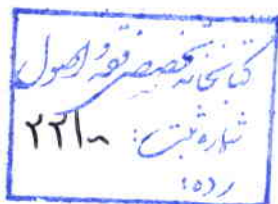 کتابخانه تخصصی فقه و اصول
شماره ثبت:
رده: